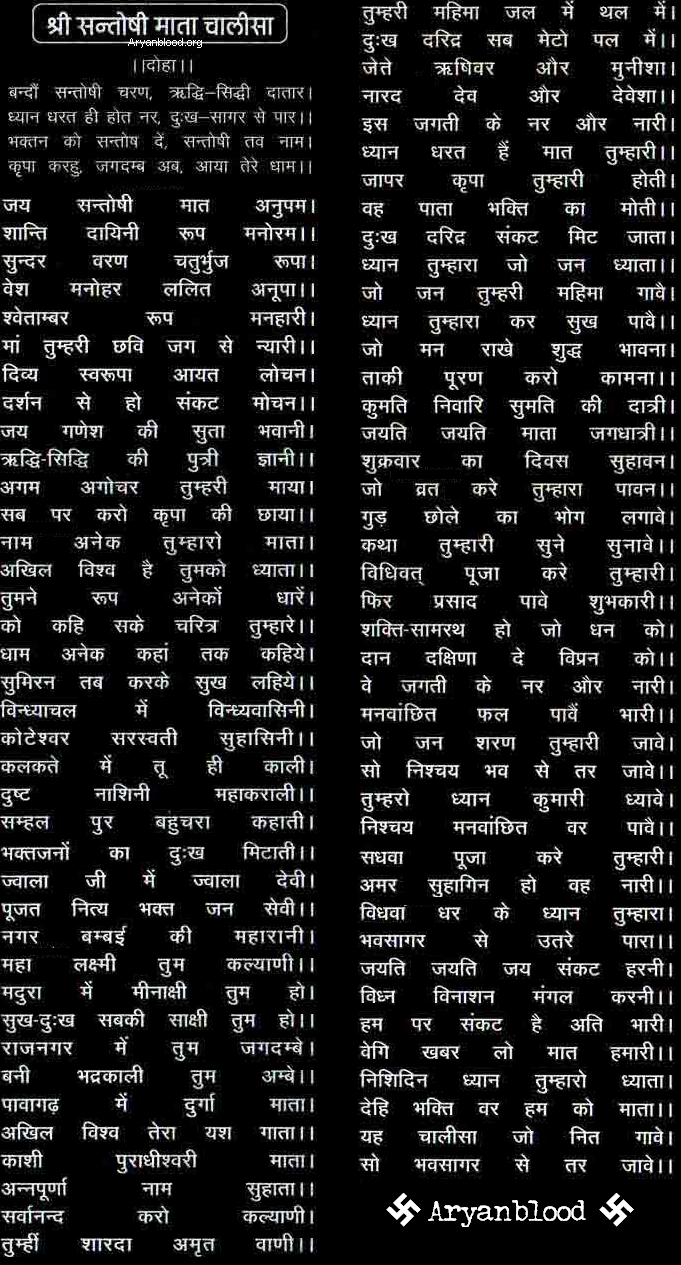 श्री सन्तोषी माता चालीसा
Aryanblood.org
।।दोहा।।
बन्दौं सन्तोषी चरण, ऋद्धि–सिद्धी दातार।
ध्यान धरत ही होत नर, दुःख–सागर से पार।।
भक्तन को सन्तोष दें, सन्तोषी तव नाम।
कृपा करहु, जगदम्ब अब, आया तेरे धाम।।
जय सन्तोषी मात अनुपम।
शान्ति दायिनी रूप मनोरम।।
सुन्दर वरण चतुर्भुज रूपा।
वेश मनोहर ललित अनूपा।।
श्वेताम्बर रूप मनहारी।
मां तुम्हरी छवि जग से न्यारी।।
दिव्य स्वरूपा आयत लोचन।
दर्शन से हो संकट मोचन।।
जय गणेश की सुता भवानी।
ऋद्धि-सिद्धि की पुत्री ज्ञानी।।
अगम अगोचर तुम्हरी माया।
सब पर करो कृपा की छाया।।
नाम अनेक तुम्हारो माता।
अखिल विश्व है तुमको ध्याता।।
तुमने रूप अनेकों धारें।
को कहि सके चरित्र तुम्हारे।।
धाम अनेक कहां तक कहिये।
सुमिरन तब करके सुख लहिये।।
विन्ध्याचल में विन्ध्यवासिनी।
कोटेश्वर सरस्वती सुहासिनी।।
कलकते में तू ही काली।
दुष्ट नाशिनी महाकराली।।
सम्हल पुर बहुचरा कहाती।
भक्तजनों का दुःख मिटाती।।
ज्वाला जी में ज्वाला देवी।
पूजत नित्य भक्त जन सेवी।।
नगर बम्बई की महारानी।
महा लक्ष्मी तुम कल्याणी।।
मदुरा में मीनाक्षी तुम हो।
सुख-दुःख सबकी साक्षी तुम हो।।
राजनगर में तुम जगदम्बे।
बनी भद्रकाली तुम अम्बे।।
पावागढ़ में दुर्गा माता।
अखिल विश्व तेरा यश गाता।।
काशी पुराधीश्वरी माता।
अन्नपूर्णा नाम सुहाता।।
सर्वानन्द करो कल्याणी।
तुम्हीं शारदा अमृत वाणी।।
तुम्हरी महिमा जल में थल में।
दुःख दरिद्र सब मेटो पल में।।
जेते ऋषिवर और मुनीशा।
नारद देव और देवेशा।।
इस जगती के नर और नारी।
ध्यान धरत हैं मात तुम्हारी।।
जापर कृपा तुम्हारी होती।
वह पाता भक्ति का मोती।।
दुःख दरिद्र संकट मिट जाता।
ध्यान तुम्हारा जो जन ध्याता।।
जो जन तुम्हरी महिमा गावै।
ध्यान तुम्हारा कर सुख पावै।।
जो मन राखे शुद्ध भावना।
ताकी पूरण करो कामना।।
कुमति निवारि सुमति की दात्री।
जयति जयति माता जगधात्री।।
शुक्रवार का दिवस सुहावन।
जो व्रत करे तुम्हारा पावन।।
गुड़ छोले का भोग लगावे।
कथा तुम्हारी सुने सुनावे।।
विधिवत् पूजा करे तुम्हारी।
फिर प्रसाद पावे शुभकारी।।
शक्ति-सामरथ हो जो धन को।
दान दक्षिणा दे विप्रन को।।
वे जगती के नर और नारी।
मनवांछित फल पावैं भारी।।
जो जन शरण तुम्हारी जावे।
सो निश्चय भव से तर जावे।।
तुम्हरो ध्यान कुमारी ध्यावे।
निश्चय मनवांछित वर पावै।।
सधवा पूजा करे तुम्हारी।
अमर सुहागिन हो वह नारी।।
विधवा धर के ध्यान तुम्हारा।
भवसागर से उतरे पारा।।
जयति जयति जय संकट हरनी।
विध्न विनाशन मंगल करनी।।
हम पर संकट है अति भारी।
वेगि खबर लो मात हमारी।।
निशिदिन ध्यान तुम्हारो ध्याता।
देहि भक्ति वर हम को माता।।
यह चालीसा जो नित गावे।
सो भवसागर से तर जावे।।
卐 Aryanblood 卐